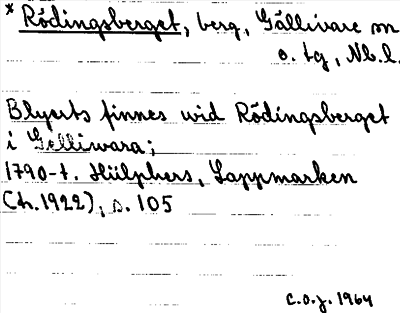 * Rödingsberget, berg, Gällivare sn
o. tg, Nb.l.
Blyerts finnes wid Rödingsberget
i Gelliwara;
1790-t. Hülphers, Lappmarken
(tr.1922), s. 105
C.O.J. 1964